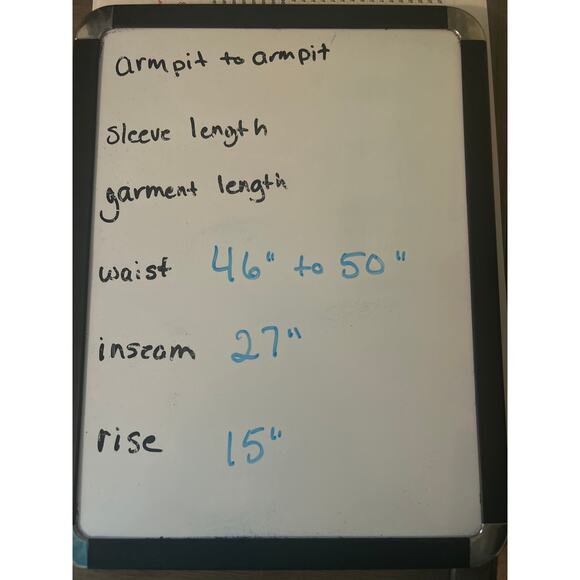 armpit to armpit
sleeve length
garment length
waist 46" to 50"
inseam 27"
rise 15"